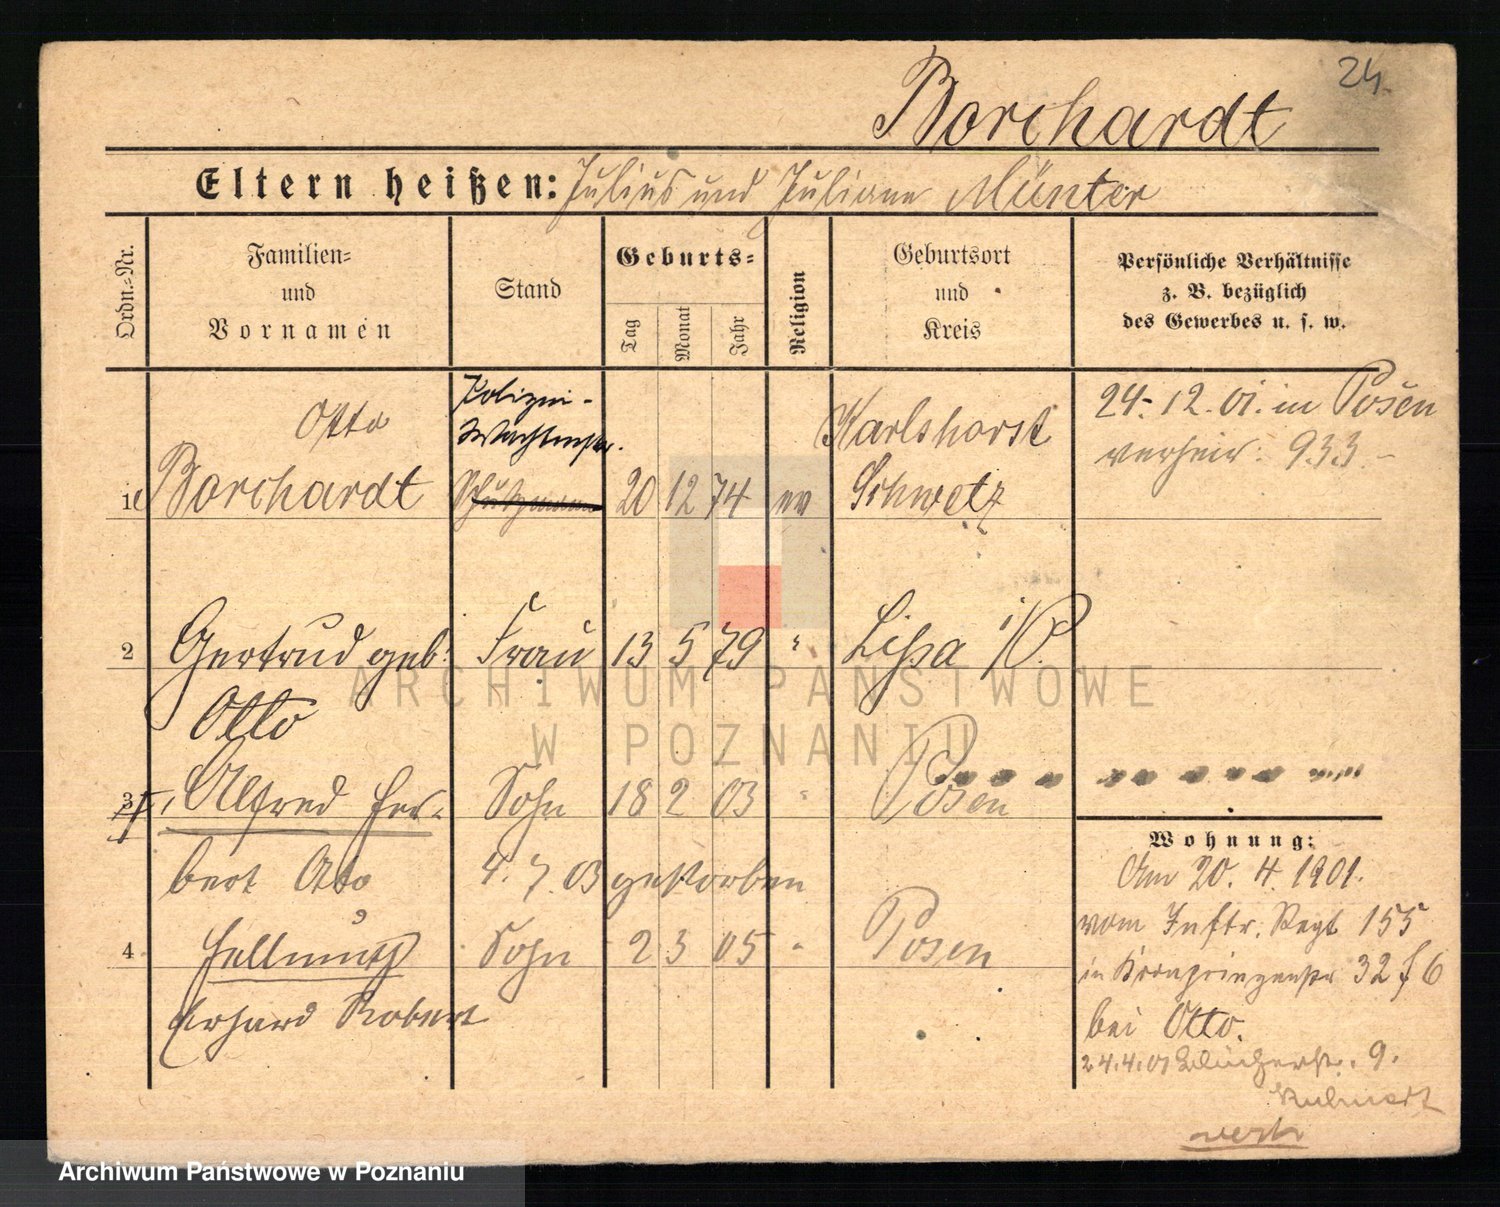 24.
Borchardt
Eltern heißen: Julius und Juliane Münter
Ordn.-Nr.
Familien-
und
Vornamen
Stand
Geburts-
Tag
Monat
Jahr
Religion
Geburtsort
und
Kreis
Persönliche Verhältnisse
z. B. bezüglich
des Gewerbes u. s. w.
Otto
Polizei-
Wachtmstr.
Karlshorst
24. 12. 01. in Posen
verheir. 933.
1 Borchardt Schutzmann 20 12 74 ev Schwetz
2 Gertrud geb. Frau 13 5 79 " Lissa i/P.
Otto
3 Alfred Her- Sohn 18 2 03 " Posen
bert Otto 4. 7. 03 gestorben
4 Hellmuth Sohn 2 3 05 " Posen
Erhard Robert
Wohnung:
Am 20. 4. 1901.
vom Inftr. Regt 155
in Kronprinzenstr 32
bei Otto.
24.4.01 Blücherstr. 9.
ARCHIWUM PAŃSTWOWE
W POZNANIU
Archiwum Państwowe w Poznaniu